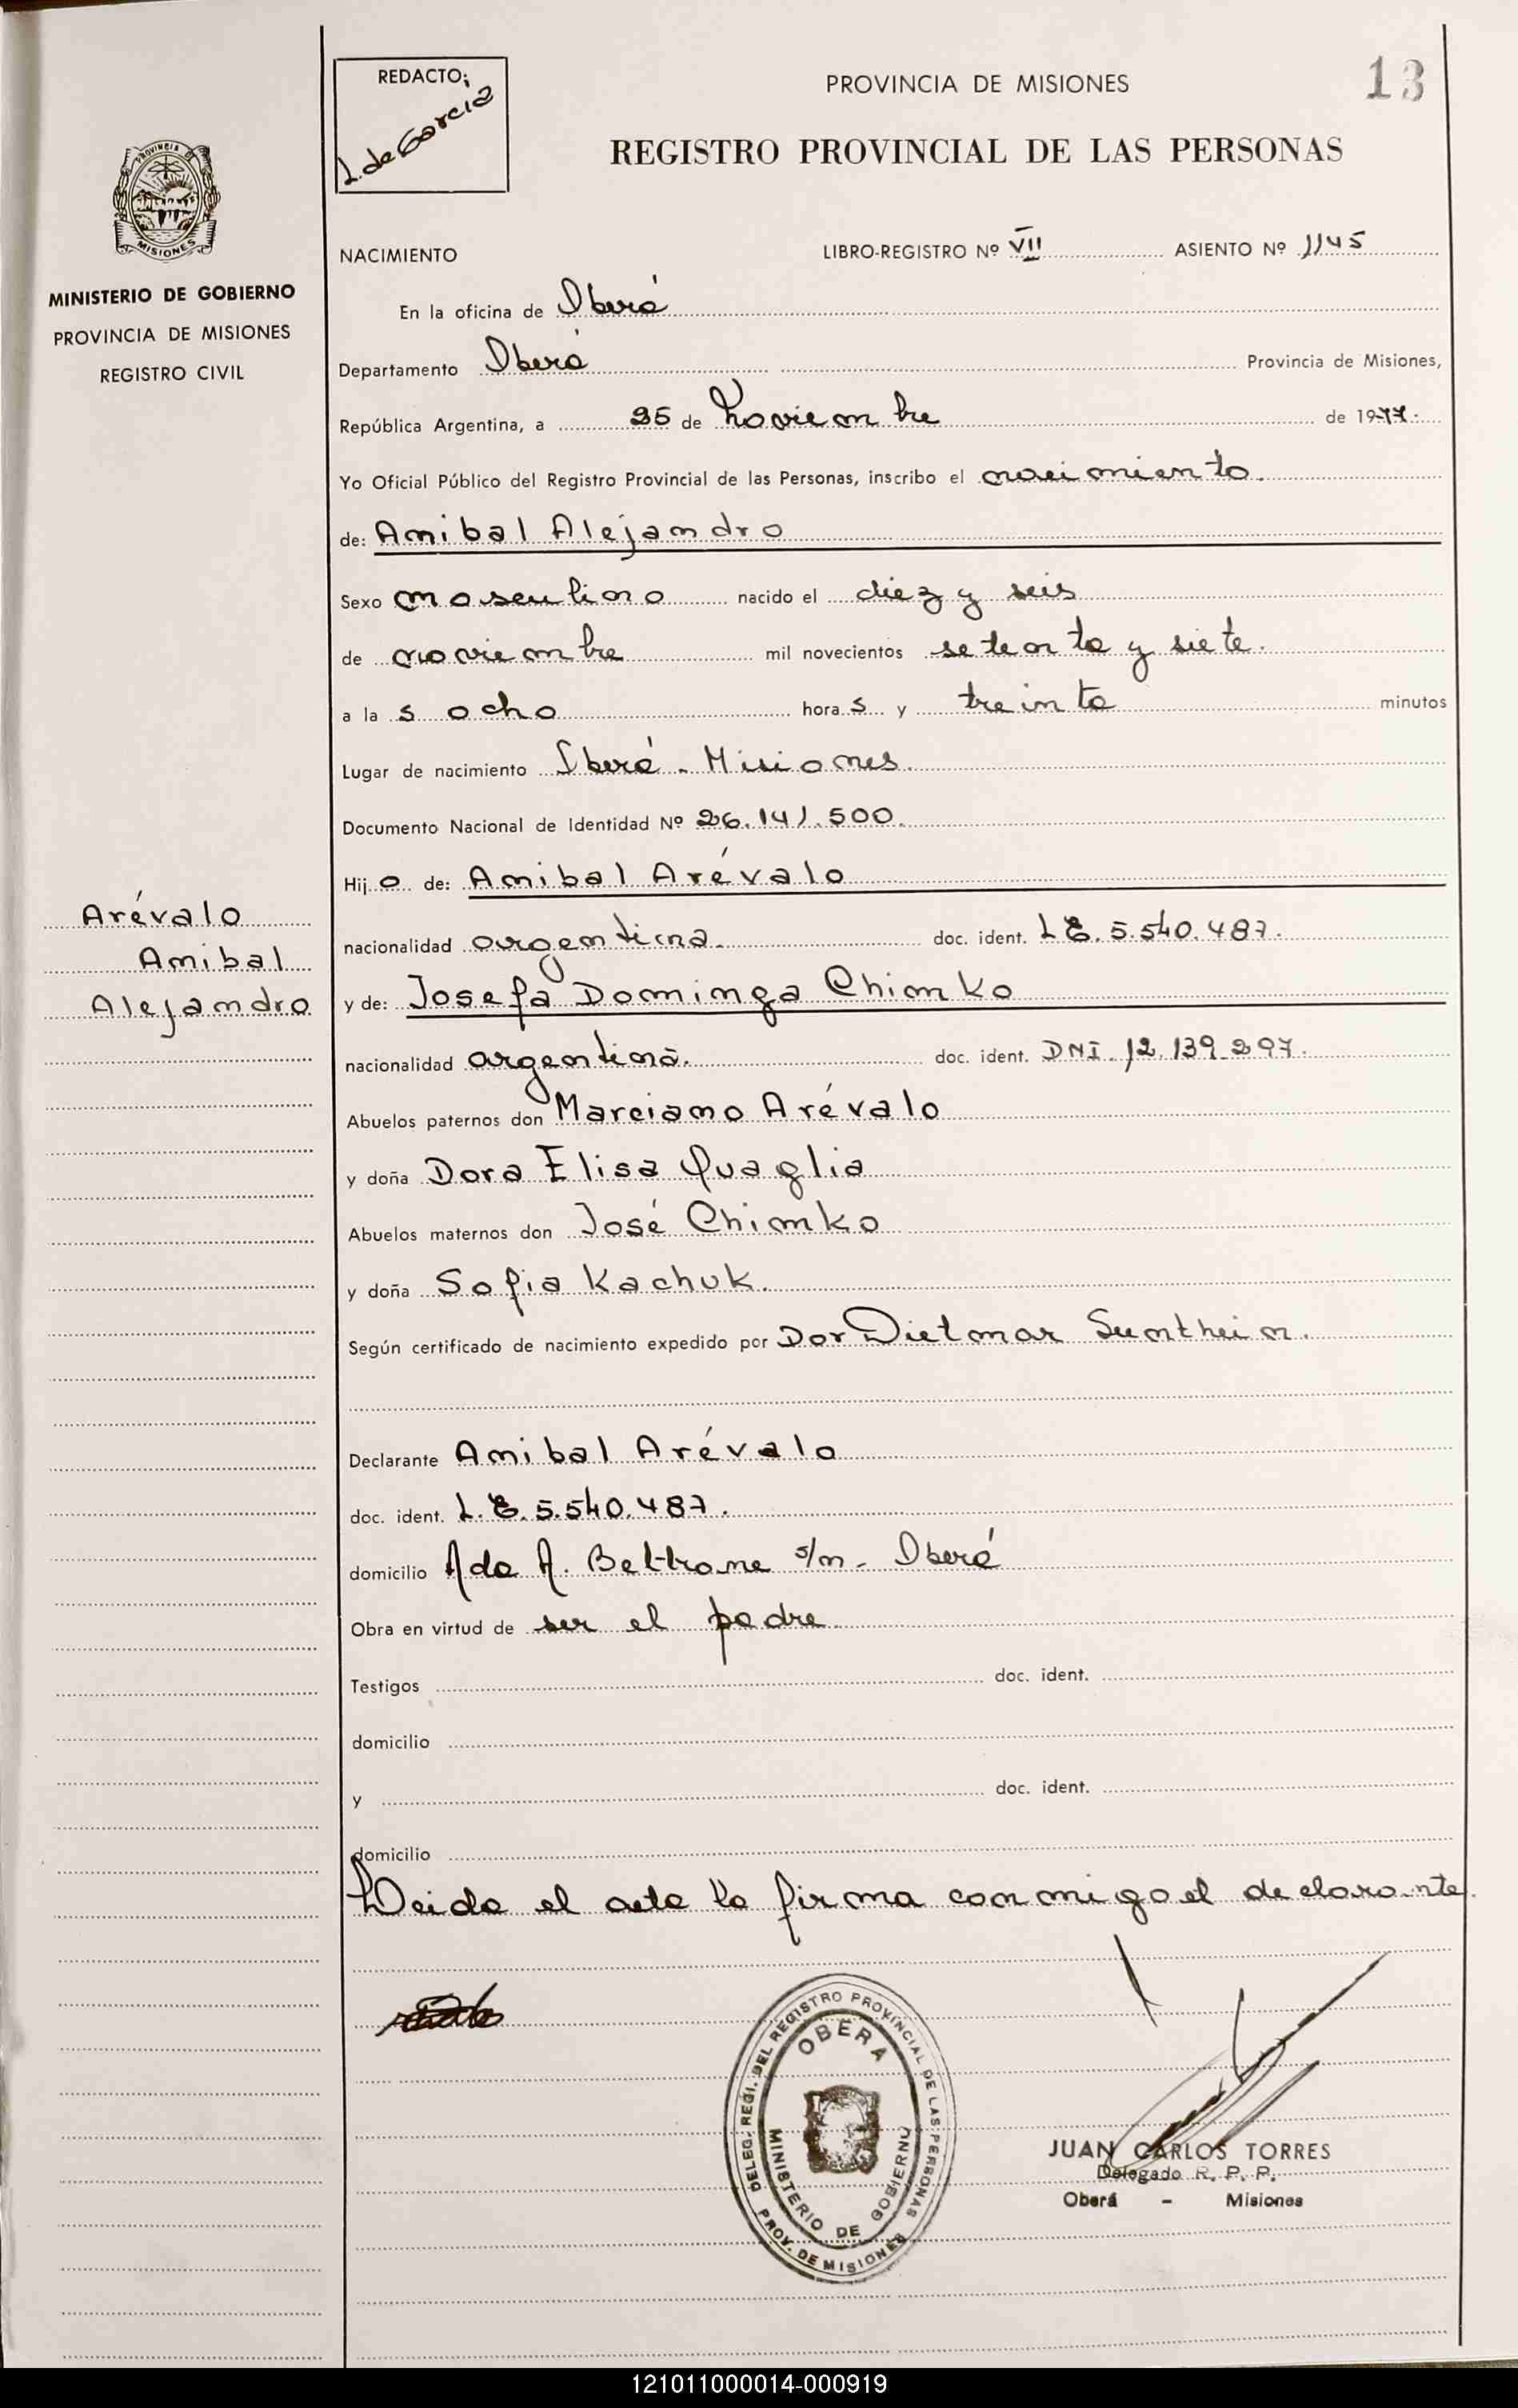 REDACTO:
L. de Garcia
PROVINCIA DE MISIONES
13
REGISTRO PROVINCIAL DE LAS PERSONAS
PROVINCIA DE
MISIONES
MINISTERIO DE GOBIERNO
PROVINCIA DE MISIONES
REGISTRO CIVIL
NACIMIENTO LIBRO-REGISTRO Nº VII ASIENTO Nº 1145
En la oficina de Oberá
Departamento Oberá Provincia de Misiones,
República Argentina, a 25 de Noviembre de 1977.
Yo Oficial Público del Registro Provincial de las Personas, inscribo el nacimiento.
de: Anibal Alejandro
Sexo masculino nacido el diez y seis
de noviembre mil novecientos setenta y siete.
a la s ocho hora s y treinta minutos
Lugar de nacimiento Oberá - Misiones.
Documento Nacional de Identidad Nº 26.141.500.
Hij o de: Anibal Arévalo
nacionalidad argentina. doc. ident. L E. 5.540.487.
y de: Josefa Dominga Chimko
nacionalidad argentina. doc. ident. DNI 12.139.297.
Abuelos paternos don Marciano Arévalo
y doña Dora Elisa Quaglia
Abuelos maternos don José Chimko
y doña Sofia Kachuk.
Según certificado de nacimiento expedido por Dor Dietmar Suntheim.
Declarante Anibal Arévalo
doc. ident. L. E. 5.540.487.
domicilio Ada A. Beltrame s/n - Oberá
Obra en virtud de ser el padre
Testigos doc. ident.
domicilio
y doc. ident.
domicilio
Leida el acta la firma conmigo el declarante.
Arévalo
Anibal
Alejandro
DELEG. REGI. DEL REGISTRO PROVINCIAL DE LAS PERSONAS
OBERA
MINISTERIO DE GOBIERNO
PROV. DE MISIONES
JUAN CARLOS TORRES
Delegado R. P. P.
Oberá - Misiones
121011000014-000919